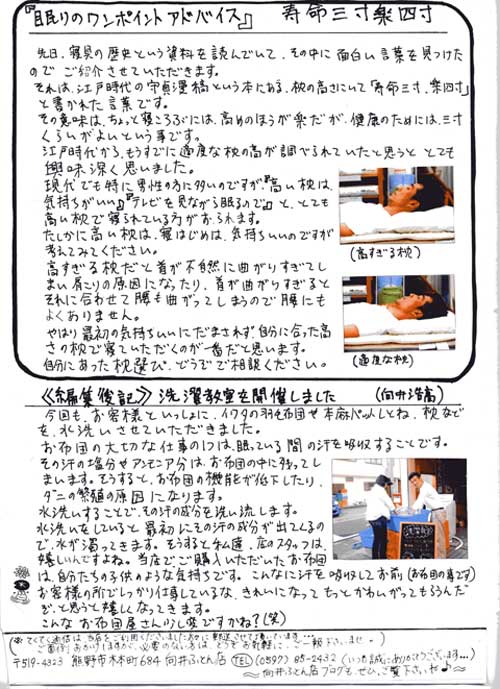 『眠りのワンポイントアドバイス』 寿命三寸楽四寸
先日、寝具の歴史という資料を読んでいて、その中に面白い言葉を見つけた
のでご紹介させていただきます。
それは、江戸時代の守貞漫稿という本にある、枕の高さにいて「寿命三寸、楽四寸」
と書かれた言葉です。
その意味は、ちょっと寝ころぶには、高めのほうが楽だが、健康のためには、三寸
くらいがよいという事です。
江戸時代から、もうすでに適度な枕の高が調べられていたと思うと とても
興味深く思いました。
現代でも特に男性の方に多いのですが、『高い枕は、
気持ちがいい』『テレビを見ながら眠るので』と、とても
高い枕で寝られている方がおられます。
たしかに高い枕は、寝はじめは、気持ちいいのですが
考えてみてください。
高すぎる枕だと首が不自然に曲がりすぎてし
まい肩こりの原因になったり、首が曲がりすぎると
それに合わせて腰も曲がってしまうので腰にも
よくありません。
やはり最初の気持ちいいにだまされず、自分に合った高
さの枕で寝ていただくのが一番だと思います。
自分にあった枕選び、どうぞご相談ください。
(高すぎる枕)
(適度な枕)
《編集後記》 洗濯教室を開催しました (向井浩高)
今回も、お客様といっしょに、イワタの羽毛布団や本麻パットしとね、枕など
を、水洗いさせていただきました。
お布団の大切な仕事の1つは、眠っている間の汗を吸収することです。
その汗の塩分やアンモニア分は、お布団の中に残ってし
まします。そうすると、お布団の機能が低下したり、
ダニの繁殖の原因になります。
水洗いすることで、その汗の成分を洗い流します。
水洗いをしていると最初にその汗の成分が出てくるの
で、水が濁ってきます。そうすると私達、店のスタッフは、
嬉しいんですよね。当店でご購入いただいたお布団
は、自分たちの子供のような気持ちです。こんなに汗を吸収してお前(お布団の事です)
お客様の所でしっかり仕事しているな、きれいになってもっとかわいがってもらうんだ
ぞ、と思うと嬉しくなってきます。
こんなお布団屋さん少し変ですかね?(笑)
〒519-4323 熊野市木本町684 向井ふとん店 TEL (0597) 85-2432 (いつも誠にありがとうございます...)
～向井ふとん店ブログもぜひ、ご覧下さいネ♪～